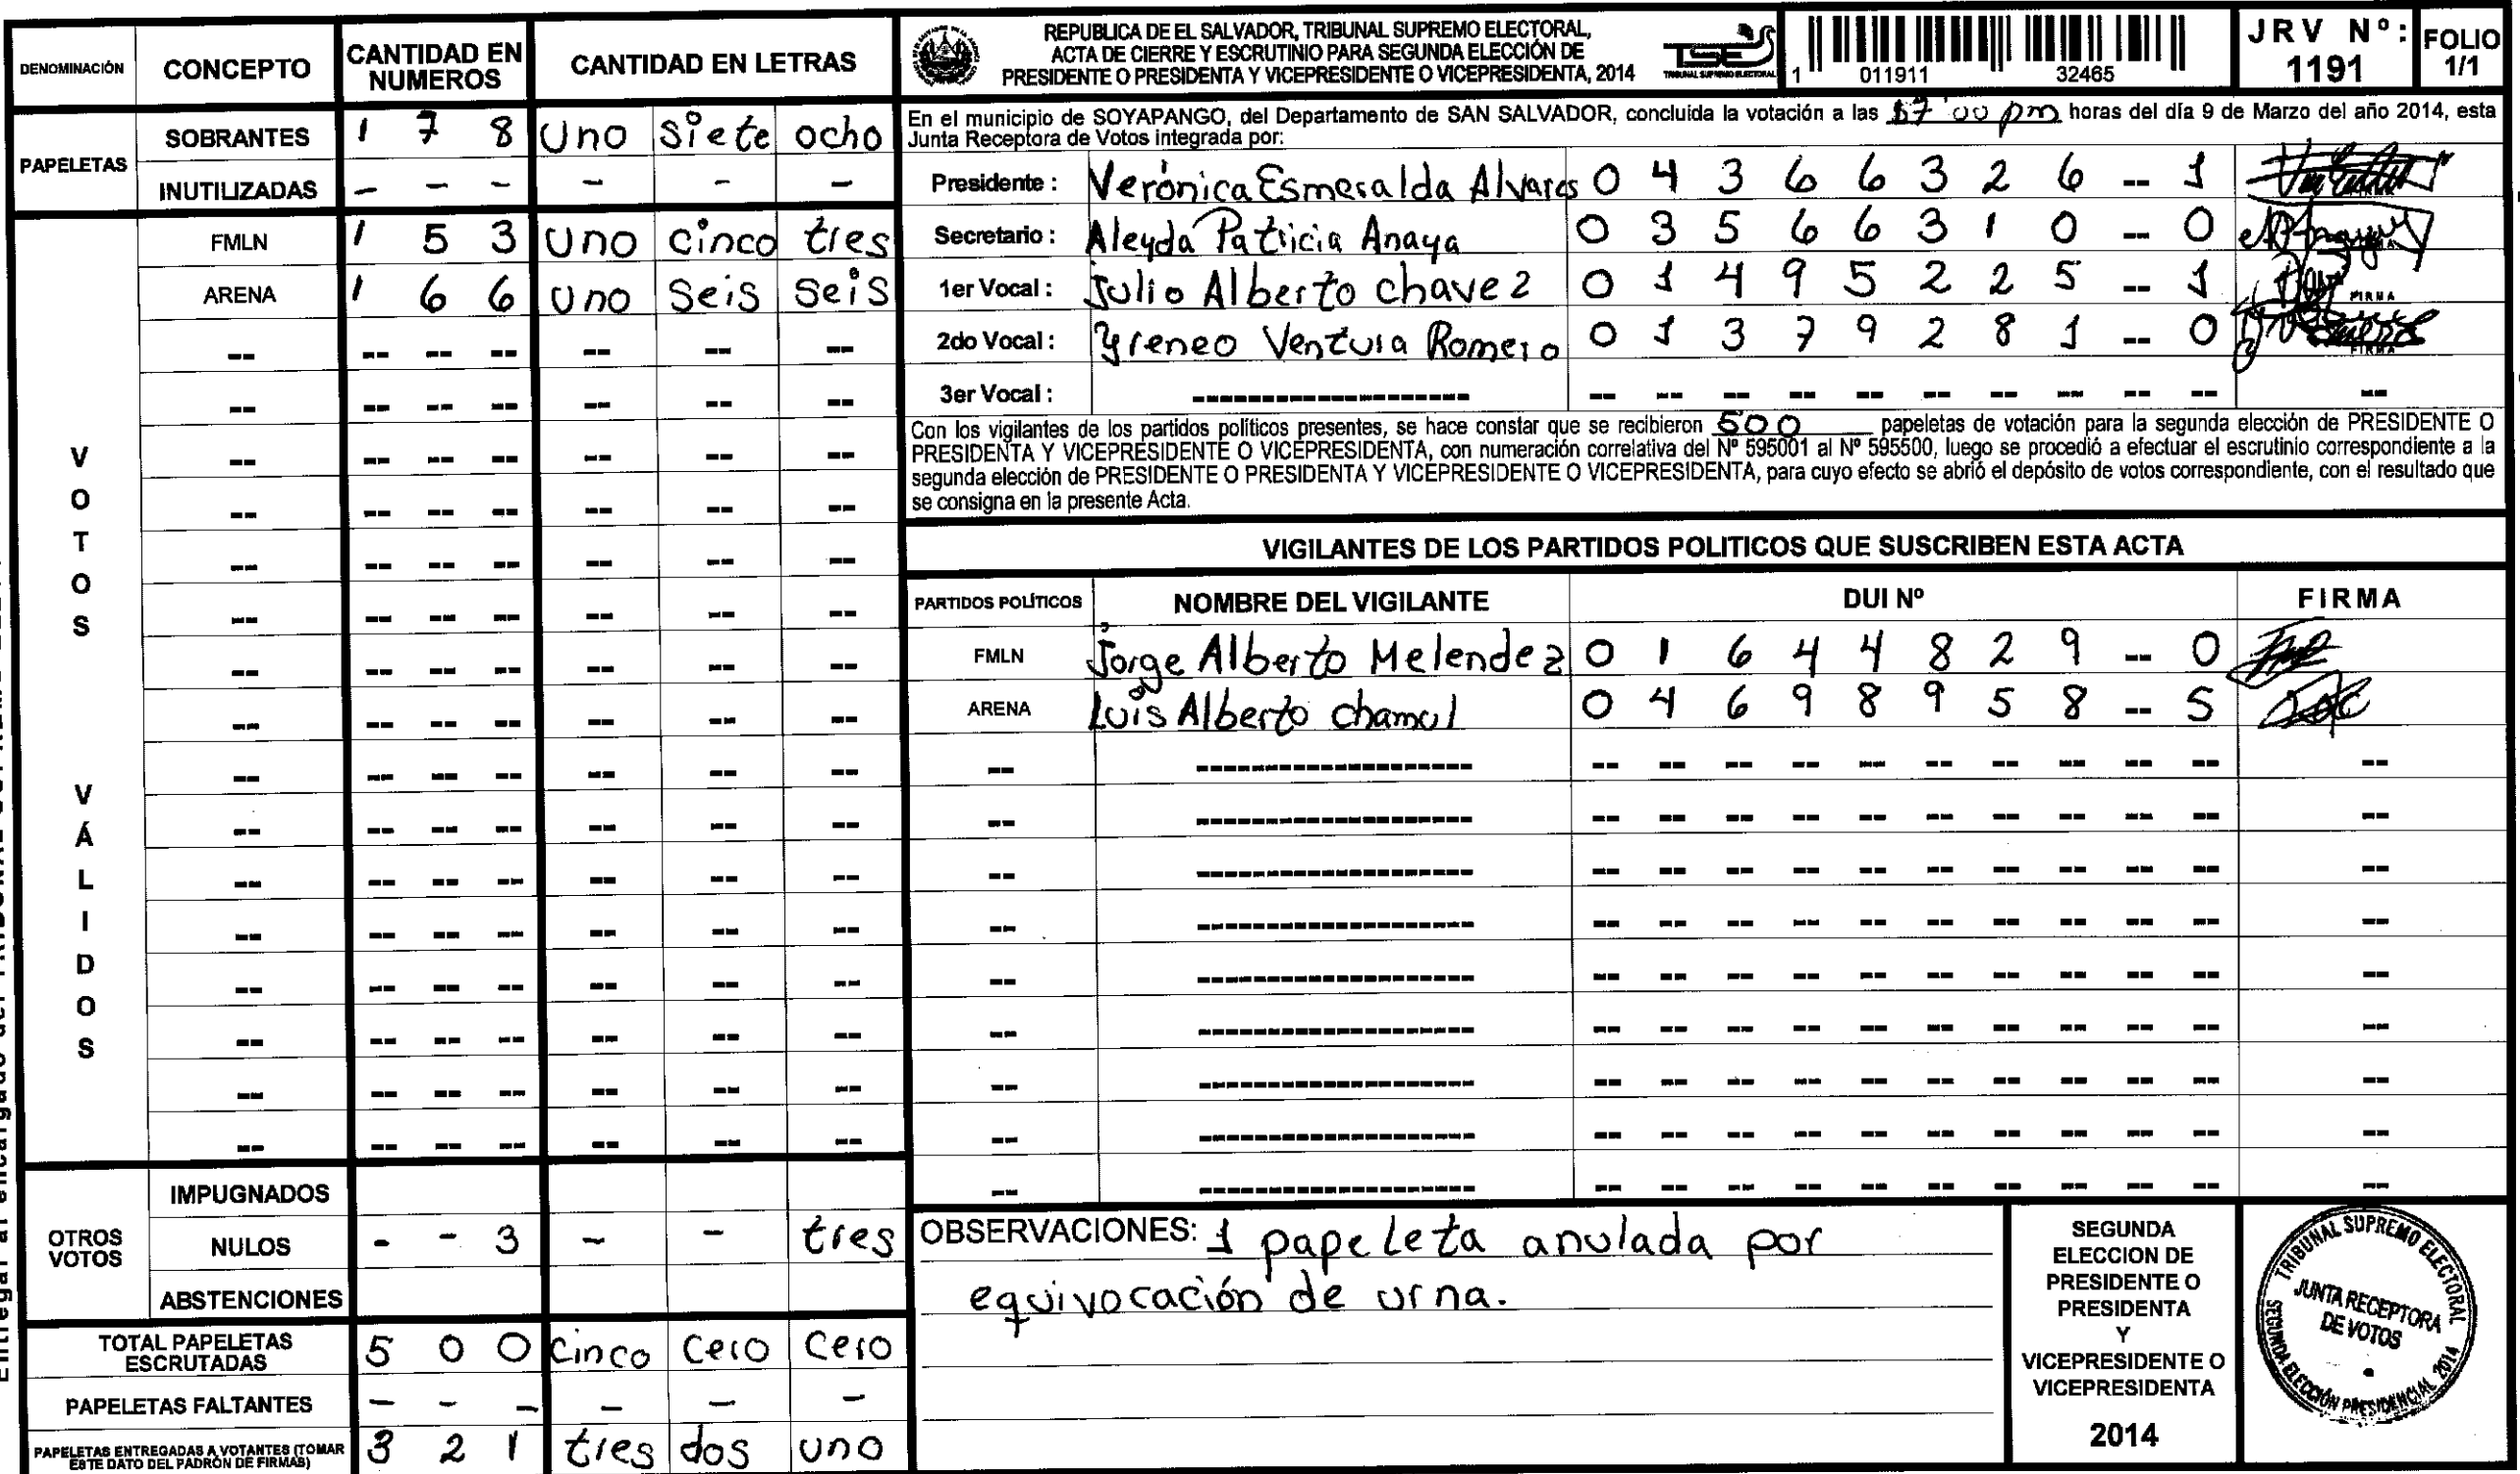 DENOMINACIÓN CONCEPTO CANTIDAD EN NUMEROS CANTIDAD EN LETRAS
PAPELETAS
SOBRANTES 1 7 8 uno siete ocho
INUTILIZADAS - - - - - -
VOTOS VÁLIDOS
FMLN 1 5 3 uno cinco tres
ARENA 1 6 6 uno seis seis
OTROS VOTOS
IMPUGNADOS
NULOS - - 3 - - tres
ABSTENCIONES
TOTAL PAPELETAS ESCRUTADAS 5 0 0 cinco cero cero
PAPELETAS FALTANTES - - - - - -
PAPELETAS ENTREGADAS A VOTANTES (TOMAR ESTE DATO DEL PADRÓN DE FIRMAS) 3 2 1 tres dos uno
REPUBLICA DE EL SALVADOR, TRIBUNAL SUPREMO ELECTORAL,
ACTA DE CIERRE Y ESCRUTINIO PARA SEGUNDA ELECCIÓN DE
PRESIDENTE O PRESIDENTA Y VICEPRESIDENTE O VICEPRESIDENTA, 2014
TSE
TRIBUNAL SUPREMO ELECTORAL
1 011911 32465
JRV Nº: 1191
FOLIO 1/1
En el municipio de SOYAPANGO, del Departamento de SAN SALVADOR, concluida la votación a las 00 pm horas del día 9 de Marzo del año 2014, esta
Junta Receptora de Votos integrada por:
Presidente: Verónica Esmeralda Alvares 0 4 3 6 6 3 2 6 -- 1
Secretario: Aleyda Patricia Anaya 0 3 5 6 6 3 1 0 -- 0
1er Vocal: Julio Alberto chavez 0 1 4 9 5 2 2 5 -- 1 FIRMA
2do Vocal: Yreneo Ventura Romero 0 1 3 7 9 2 8 1 -- 0 FIRMA
3er Vocal:
Con los vigilantes de los partidos políticos presentes, se hace constar que se recibieron 500 papeletas de votación para la segunda elección de PRESIDENTE O
PRESIDENTA Y VICEPRESIDENTE O VICEPRESIDENTA, con numeración correlativa del Nº 595001 al Nº 595500, luego se procedió a efectuar el escrutinio correspondiente a la
segunda elección de PRESIDENTE O PRESIDENTA Y VICEPRESIDENTE O VICEPRESIDENTA, para cuyo efecto se abrió el depósito de votos correspondiente, con el resultado que
se consigna en la presente Acta.
VIGILANTES DE LOS PARTIDOS POLITICOS QUE SUSCRIBEN ESTA ACTA
PARTIDOS POLÍTICOS NOMBRE DEL VIGILANTE DUI Nº FIRMA
FMLN Jorge Alberto Melendez 0 1 6 4 4 8 2 9 -- 0
ARENA Luis Alberto chamul 0 4 6 9 8 9 5 8 -- 5
OBSERVACIONES: 1 papeleta anulada por
equivocación de urna.
SEGUNDA
ELECCION DE
PRESIDENTE O
PRESIDENTA
Y
VICEPRESIDENTE O
VICEPRESIDENTA
2014
TRIBUNAL SUPREMO ELECTORAL
JUNTA RECEPTORA
DE VOTOS
SEGUNDA ELECCIÓN PRESIDENCIAL 2014